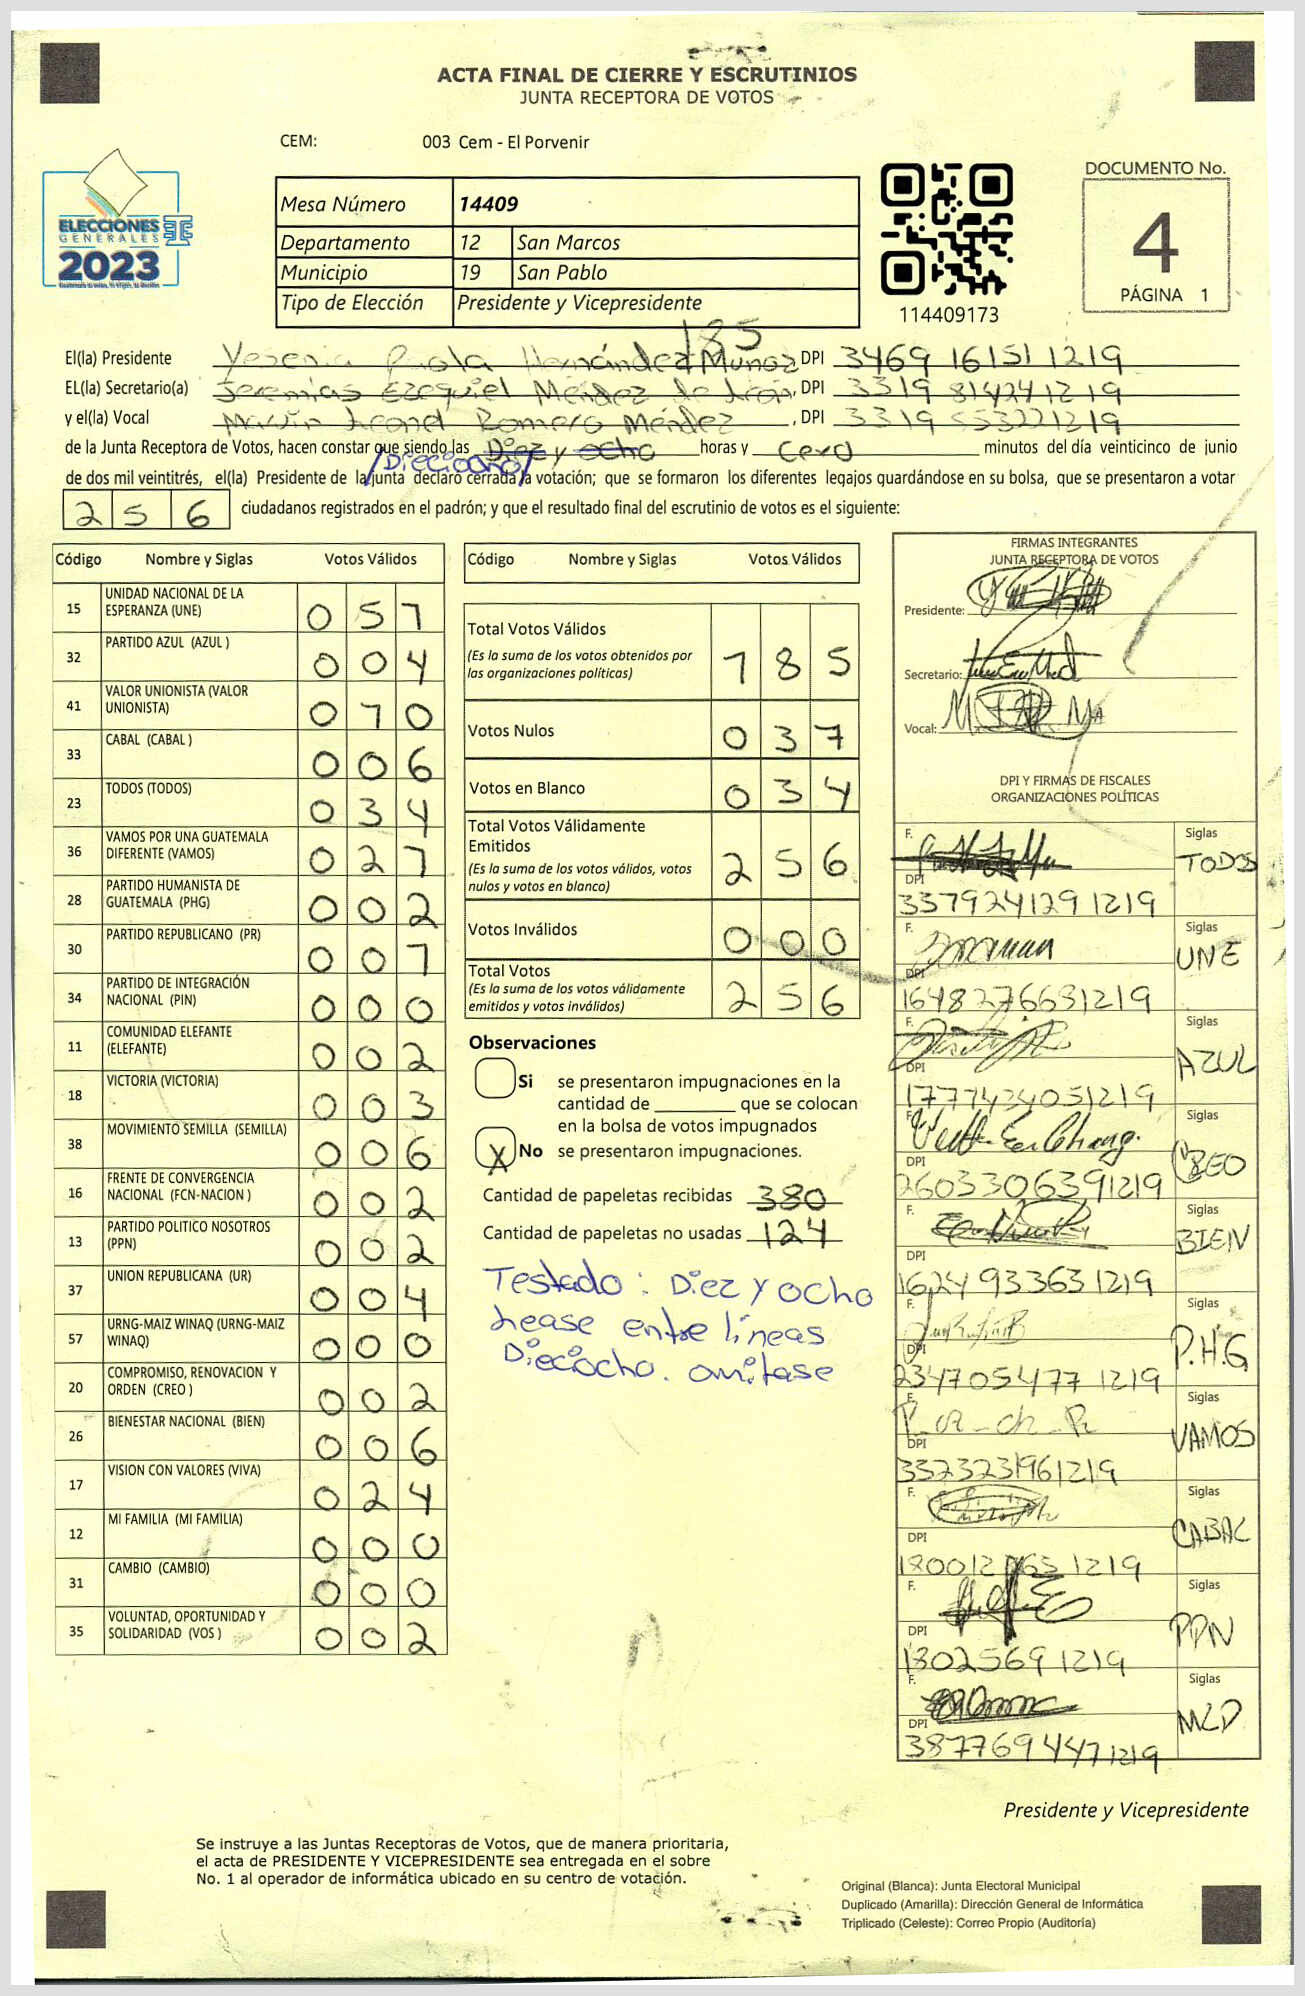 ACTA FINAL DE CIERRE Y ESCRUTINIOS
JUNTA RECEPTORA DE VOTOS
CEM: 003 Cem - El Porvenir
DOCUMENTO No.
4
PÁGINA 1
ELECCIONES
GENERALES
2023
Mesa Número 14409
Departamento 12 San Marcos
Municipio 19 San Pablo
Tipo de Elección Presidente y Vicepresidente
114409173
185
El(la) Presidente Yesenia Paola Hernández Muñoz DPI 3469 16151 1219
EL(la) Secretario(a) Jeremías Ezequiel Méndez de León, DPI 3319 81424 1219
y el(la) Vocal Marvin Leonel Romero Méndez, DPI 3319 55322 1219
de la Junta Receptora de Votos, hacen constar que siendo las Diez y ocho horas y Cero minutos del día veinticinco de junio
/Dieciocho/
de dos mil veintitrés, el(la) Presidente de la junta declaró cerrada la votación; que se formaron los diferentes legajos guardándose en su bolsa, que se presentaron a votar
256 ciudadanos registrados en el padrón; y que el resultado final del escrutinio de votos es el siguiente:
Código Nombre y Siglas Votos Válidos
15 UNIDAD NACIONAL DE LA ESPERANZA (UNE) 057
32 PARTIDO AZUL (AZUL ) 004
41 VALOR UNIONISTA (VALOR UNIONISTA) 010
33 CABAL (CABAL ) 006
23 TODOS (TODOS) 034
36 VAMOS POR UNA GUATEMALA DIFERENTE (VAMOS) 027
28 PARTIDO HUMANISTA DE GUATEMALA (PHG) 002
30 PARTIDO REPUBLICANO (PR) 001
34 PARTIDO DE INTEGRACIÓN NACIONAL (PIN) 000
11 COMUNIDAD ELEFANTE (ELEFANTE) 002
18 VICTORIA (VICTORIA) 003
38 MOVIMIENTO SEMILLA (SEMILLA) 006
16 FRENTE DE CONVERGENCIA NACIONAL (FCN-NACION ) 002
13 PARTIDO POLITICO NOSOTROS (PPN) 002
37 UNION REPUBLICANA (UR) 004
57 URNG-MAIZ WINAQ (URNG-MAIZ WINAQ) 000
20 COMPROMISO, RENOVACION Y ORDEN (CREO ) 002
26 BIENESTAR NACIONAL (BIEN) 006
17 VISION CON VALORES (VIVA) 024
12 MI FAMILIA (MI FAMILIA) 000
31 CAMBIO (CAMBIO) 000
35 VOLUNTAD, OPORTUNIDAD Y SOLIDARIDAD (VOS ) 002
Código Nombre y Siglas Votos Válidos
Total Votos Válidos 185
(Es la suma de los votos obtenidos por
las organizaciones políticas)
Votos Nulos 037
Votos en Blanco 034
Total Votos Válidamente
Emitidos 256
(Es la suma de los votos válidos, votos
nulos y votos en blanco)
Votos Inválidos 000
Total Votos 256
(Es la suma de los votos válidamente
emitidos y votos inválidos)
Observaciones
Si se presentaron impugnaciones en la
cantidad de ________ que se colocan
en la bolsa de votos impugnados
X No se presentaron impugnaciones.
Cantidad de papeletas recibidas 380
Cantidad de papeletas no usadas 124
Testado: Diez y ocho
Lease entre líneas
Dieciocho. omitase
FIRMAS INTEGRANTES
JUNTA RECEPTORA DE VOTOS
Presidente:
Secretario:
Vocal:
DPI Y FIRMAS DE FISCALES
ORGANIZACIONES POLÍTICAS
F. Siglas
TODOS
DPI
337924129 1219
F. Siglas
UNE
DPI
1648276631219
F. Siglas
AZUL
DPI
1777434051219
F. Siglas
CREO
DPI
2603306391219
F. Siglas
BIEN
DPI
1624 93363 1219
F. Siglas
P.H.G
DPI
234705477 1219
F. Siglas
VAMOS
DPI
3323231961219
F. Siglas
CABAL
DPI
F. Siglas
PPN
DPI
18025691219
F. Siglas
MLP
DPI
3877694471219
Presidente y Vicepresidente
Se instruye a las Juntas Receptoras de Votos, que de manera prioritaria,
el acta de PRESIDENTE Y VICEPRESIDENTE sea entregada en el sobre
No. 1 al operador de informática ubicado en su centro de votación.
Original (Blanca): Junta Electoral Municipal
Duplicado (Amarilla): Dirección General de Informática
Triplicado (Celeste): Correo Propio (Auditoría)